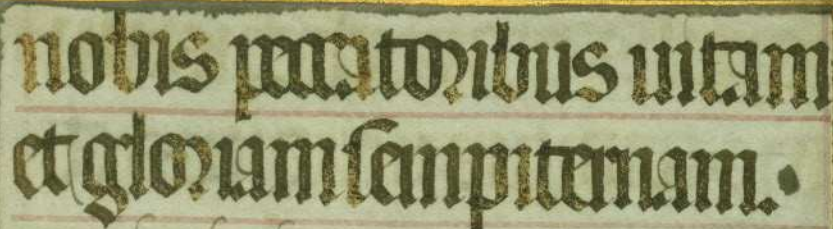 nobis peccatoribus uitam
et gloriam sempiternam.